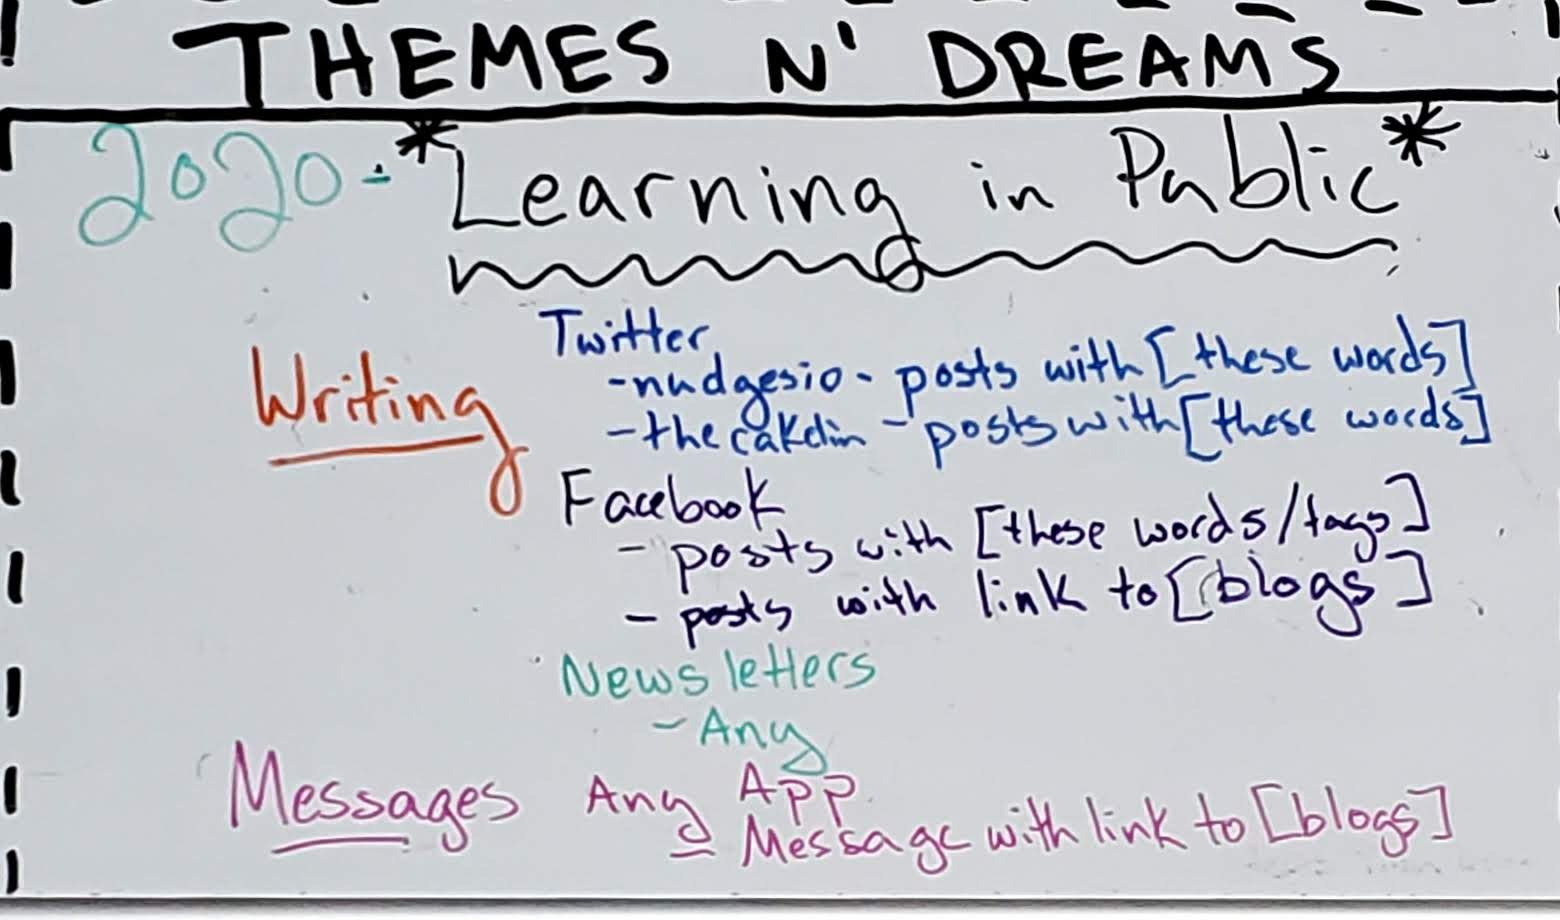 THEMES N' DREAMS
2020 - *Learning in Public*
Writing
Twitter
- nudgesio - posts with [these words]
- thecakelin - posts with [these words]
Facebook
- posts with [these words/tags]
- posts with link to [blogs]
Newsletters
- Any
Messages Any App
- Message with link to [blogs]